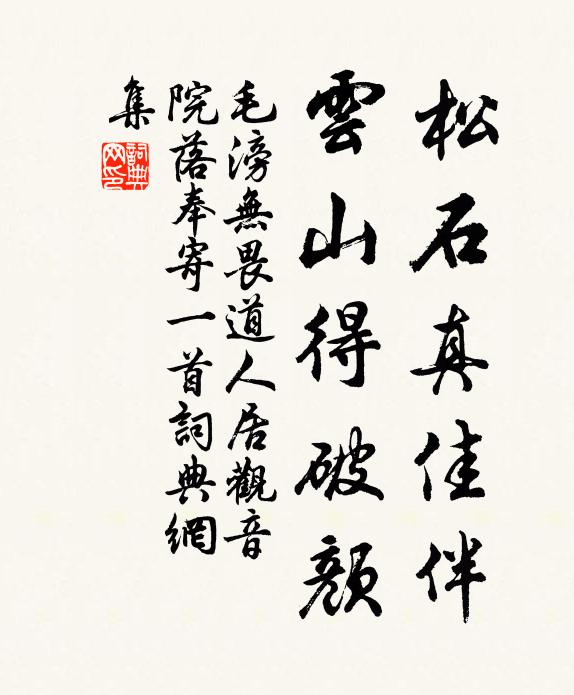 松石真佳伴
雲山得破顏
毛滂無畏道人居觀音
院落奉寄一首詞典網
集
詞典
网印